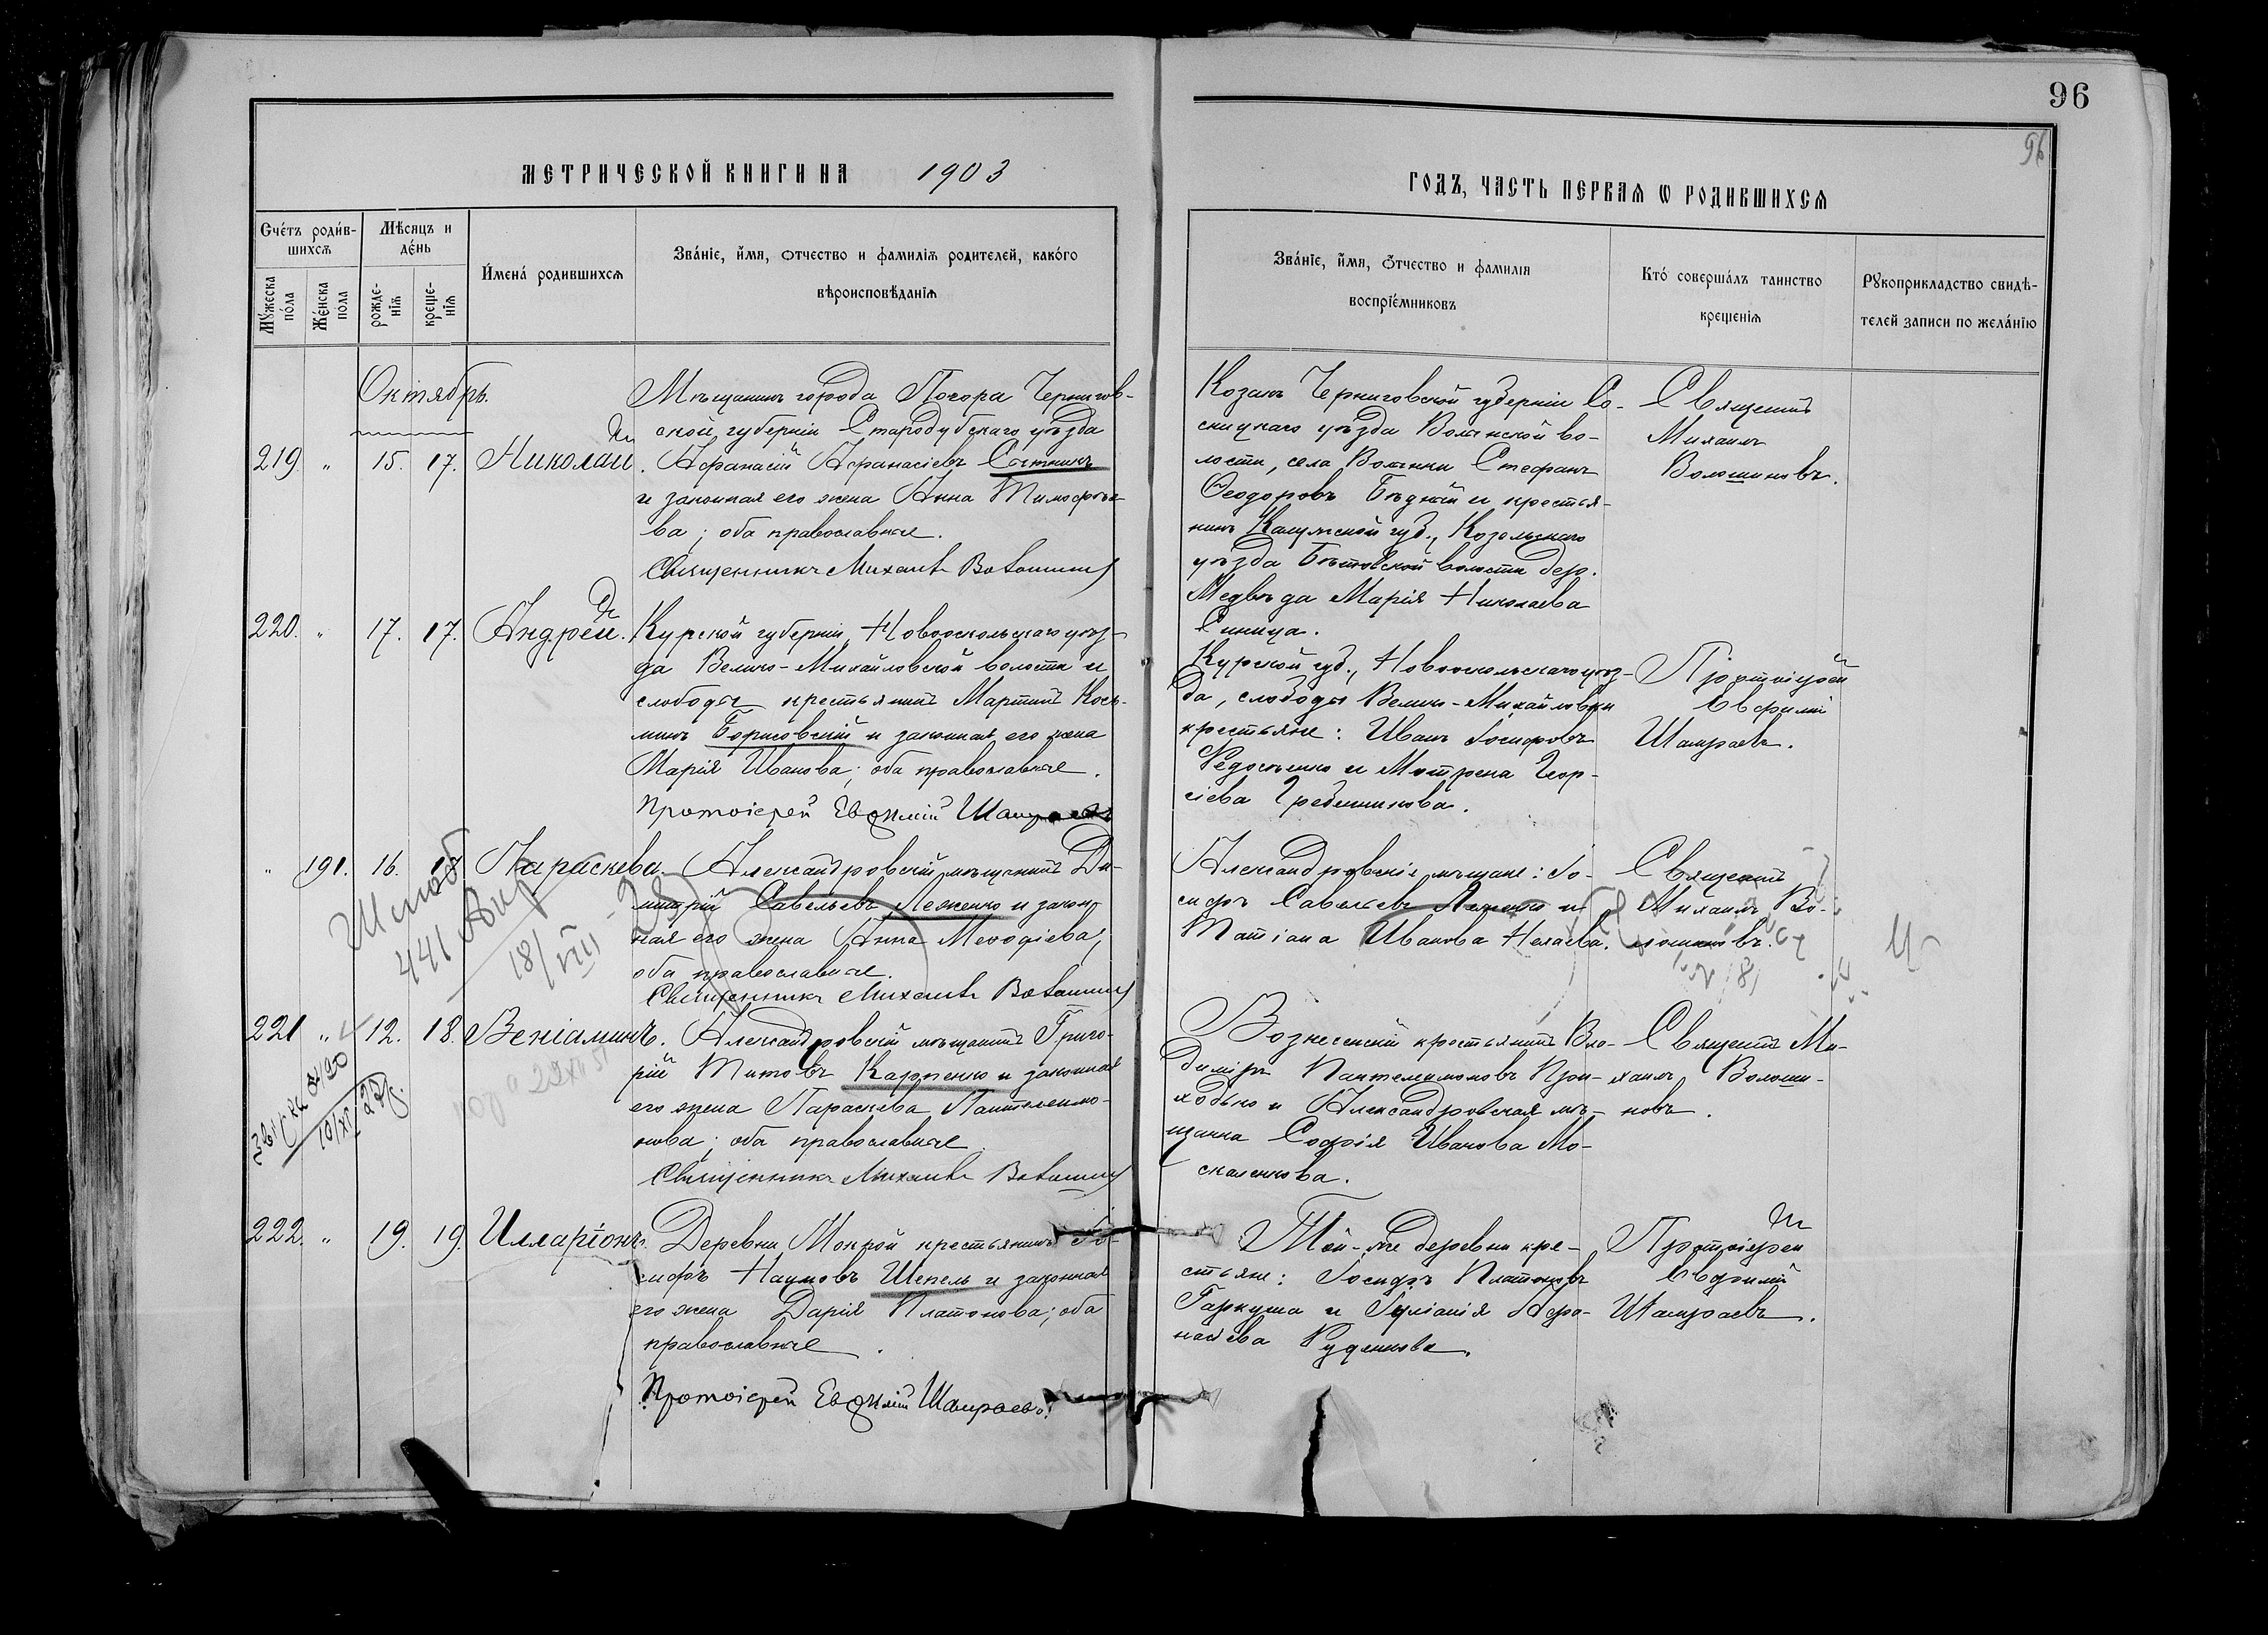 96
96
МЕТРИЧЕСКОЙ КНИГИ НА 1903
ГОДЪ, ЧАСТЬ ПЕРВАЯ Ѡ РОДИВШИХСЯ
Сче́тъ роди́в-
шихсѧ
Мѣсяцъ и
де́нь
И́мена́ родившихсѧ
Зва́нїе, и́мя, ѻтчество и фамилїѧ родителей, како́го
вѣроисповѣданїѧ
Мꙋжеска
по́ла
Же́нска
пола
рожде-
нїѧ
креще-
нїѧ
Зва́нїе, и́мя, ѻтчество и фамилїя
воспрїе́мниковъ
Кто́ соверша́лъ таинство
крещенїѧ
Рꙋкоприкладство свидѣ-
телей записи по жела́нїю
Октябрь.
219. " 15. 17. Николай.
Мѣщанинъ города Погора Чернигов-
ской губерніи Стародубскаго уѣзда
Афанасій Афанасіевъ Сытникъ
и законная его жена Анна Тимофѣе-
ва; оба православные.
Священникъ Михаилъ Волошинъ
Козакъ Черниговской губерніи Со-
сницкаго уѣзда Волынской во-
лости, села Волынки Стефанъ
Ѳеодоровъ Бѣдный и крестья-
нинъ Калужской губ., Козельскаго
уѣзда Бѣтовской волости дер.
Медвѣда Марія Николаева
Синица.
Священникъ
Михаилъ
Волошиновъ.
220. " 17. 17. Андрей.
Курской губерніи, Новооскольскаго уѣз-
да Велико-Михайловской волости и
слободы крестьянинъ Мартинъ Кось-
минъ Борисовскій и законная его жена
Марія Иванова; оба православные.
Протоіерей Евфимій Шамраевъ
Курской губ., Новооскольскаго уѣз-
да, слободы Велико-Михайловки
крестьяне: Иванъ Іосифовъ
Федосѣенко и Мотрона Геор-
гіева Гребенникова.
Протоіерей
Евфимій
Шамраевъ.
" 191. 16. 17. Параскева.
Александровскій мѣщанинъ Ди-
митрій Савельевъ Леженко и закон-
ная его жена Анна Меѳодіева;
оба православные.
Священникъ Михаилъ Волошинъ
Александровскіе мѣщане: Іо-
сифъ Савельевъ Леженко и
Татіана Иванова Нелаева.
Священникъ
Михаилъ Во-
лошиновъ.
Штоб
441
18/VIII
221 " 12. 18. Веніаминъ.
Александровскій мѣщанинъ Григо-
рій Титовъ Карпенко и законная
его жена Параскева Пантелеимо-
нова; оба православные.
Священникъ Михаилъ Волошинъ
Вознесенскій крестьянинъ Вла-
диміръ Пантелеимоновъ При-
ходько и Александровская мѣ-
щанка Софія Иванова Мо-
скаленкова.
Священникъ Ми-
хаилъ Волоши-
новъ.
222. " 19. 19. Илларіонъ.
Деревни Мокрой крестьянинъ Іо-
сифъ Наумовъ Шепель и законная
его жена Дарія Платонова; оба
православные.
Протоіерей Евфимій Шамраевъ.
Той-же деревни кре-
стьяне: Іосифъ Платоновъ
Гаркуша и Іуліанія Афа-
насіева Руденкова.
Протоіерей
Евфимій
Шамраевъ.